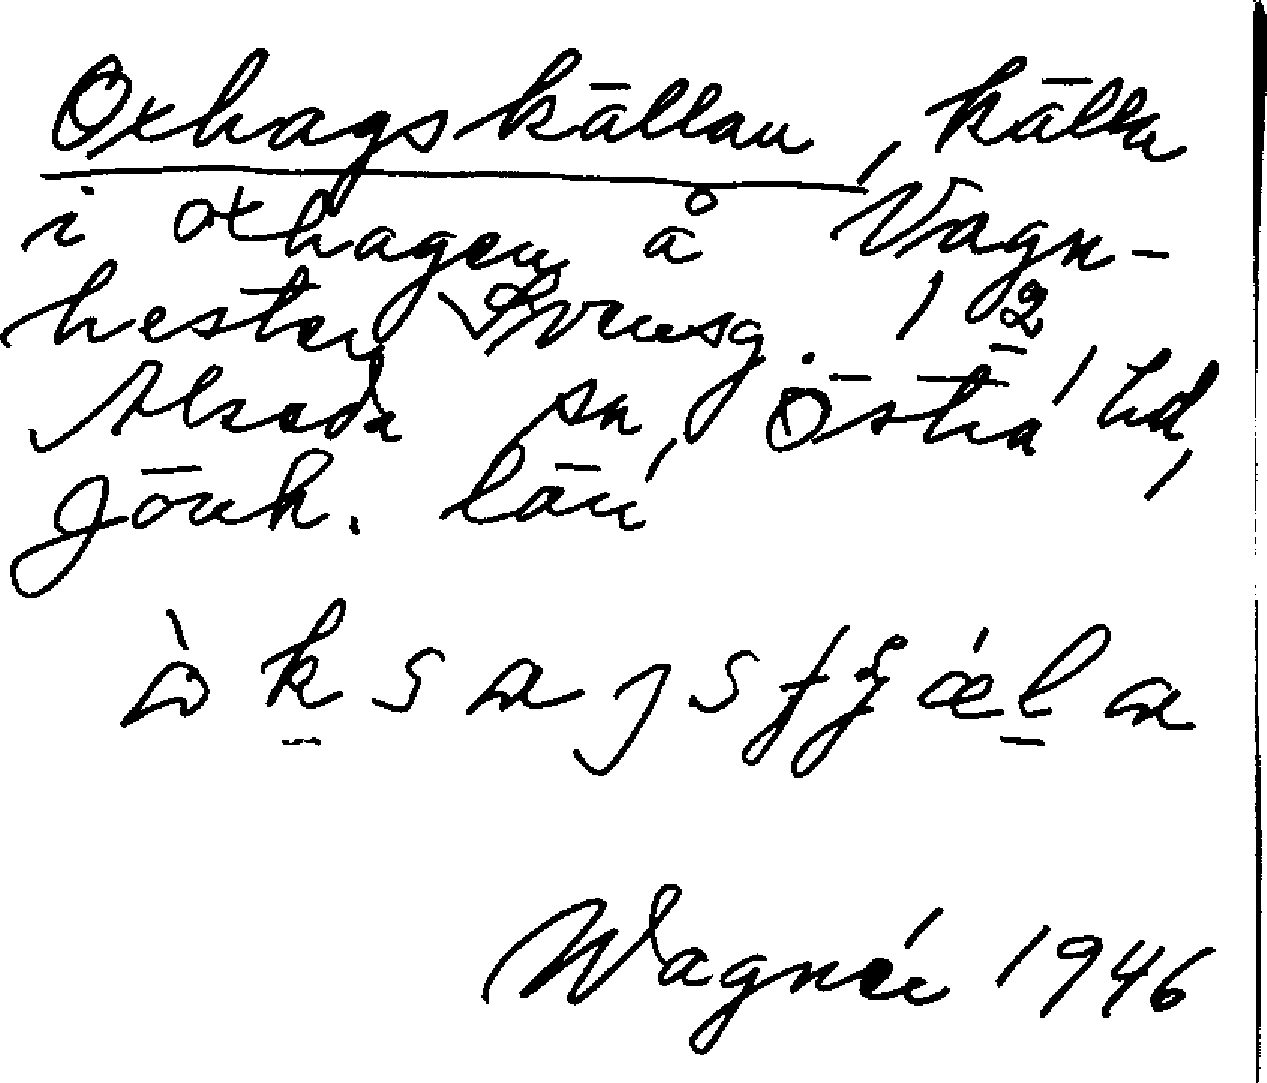 Oxhagskällan, källa
i oxhagen å Vagn-
hester Kronsg. 1 2
Alseda sn, Östra hd,
Jönk. län
Wagnér 1946